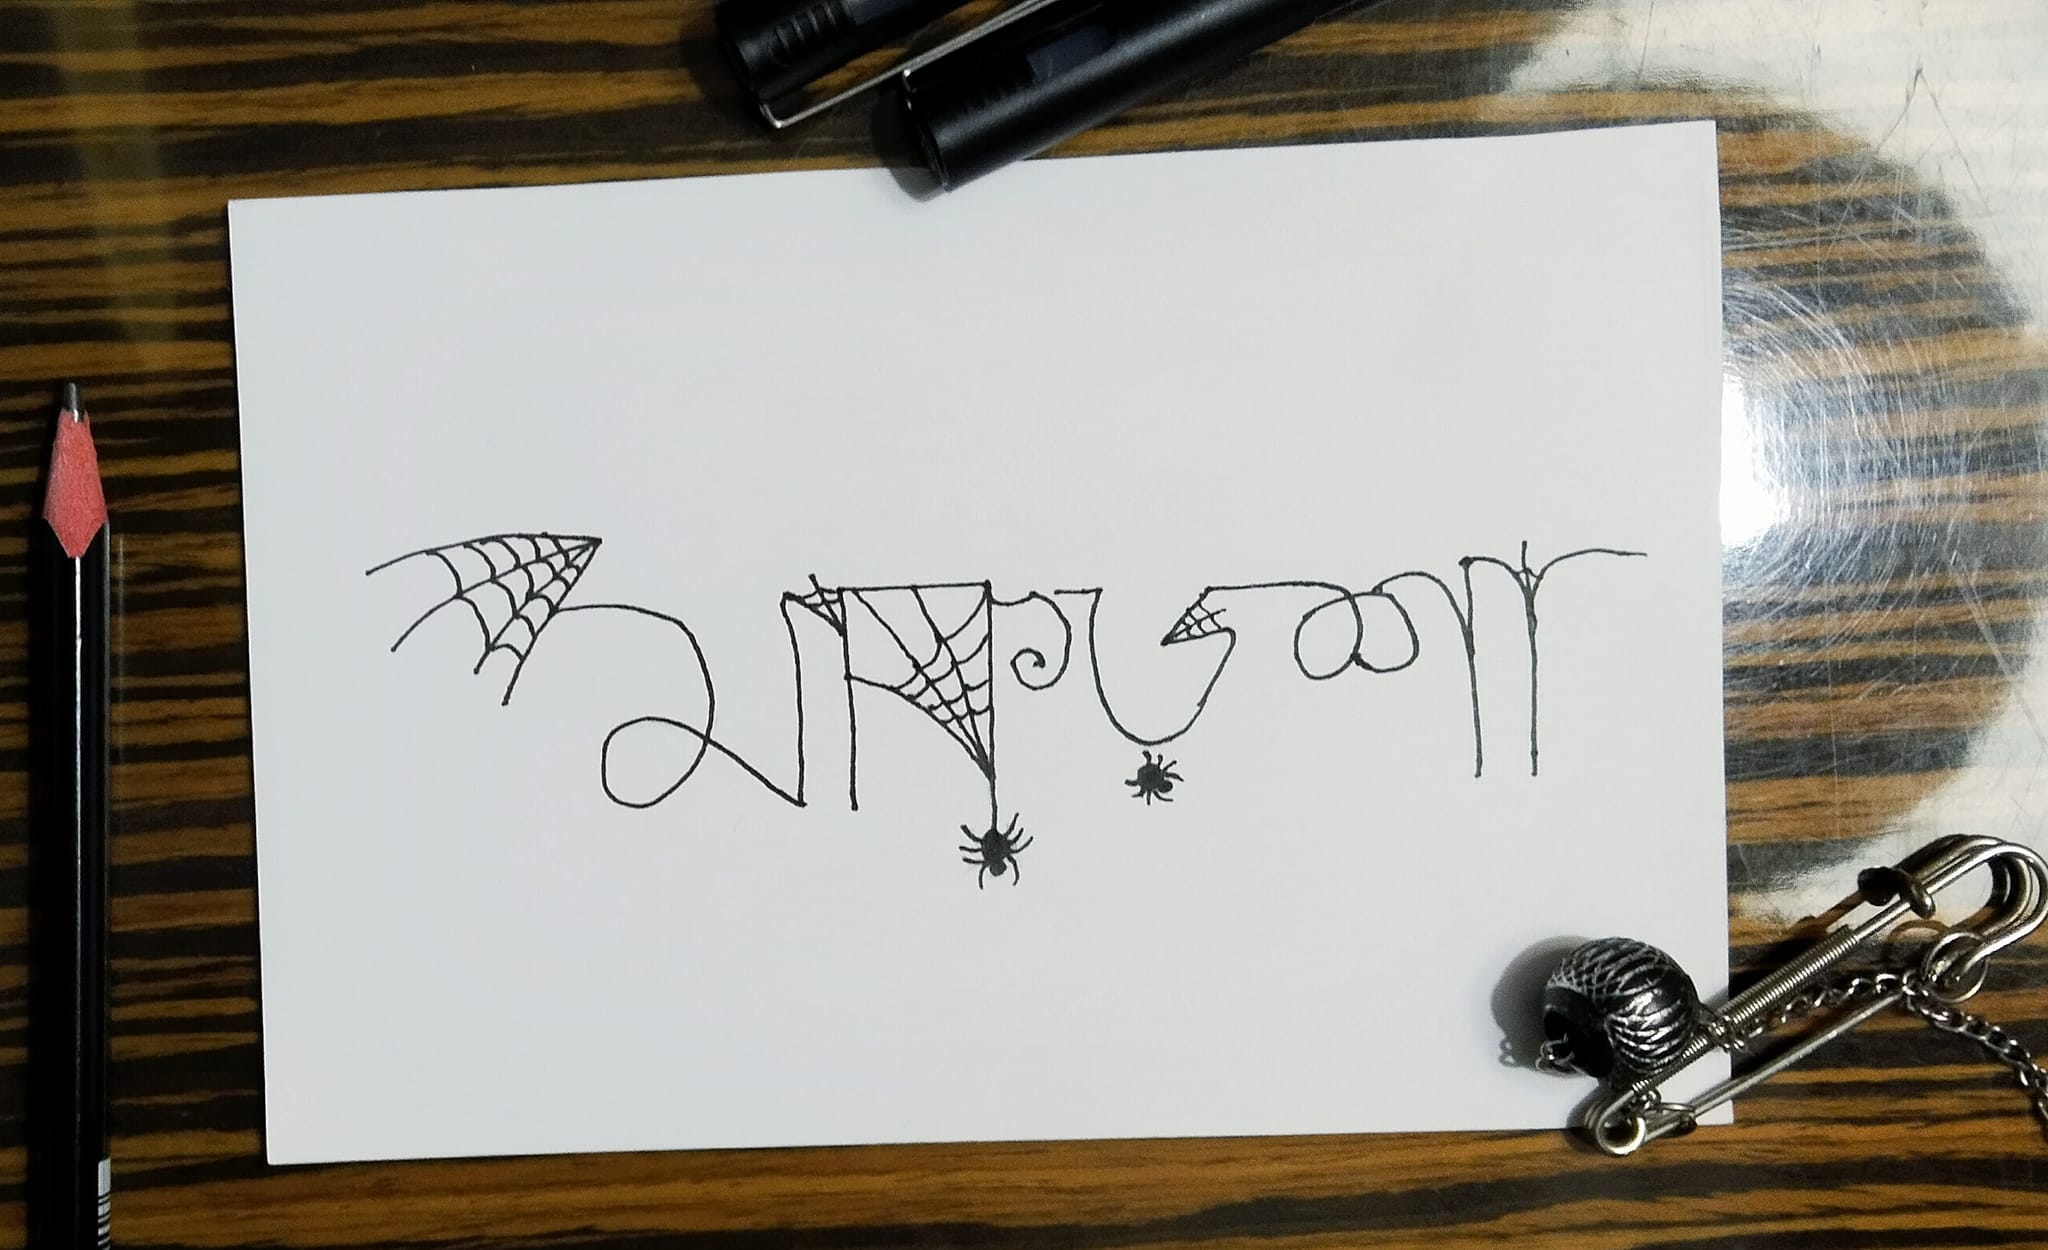 মাকড়সা